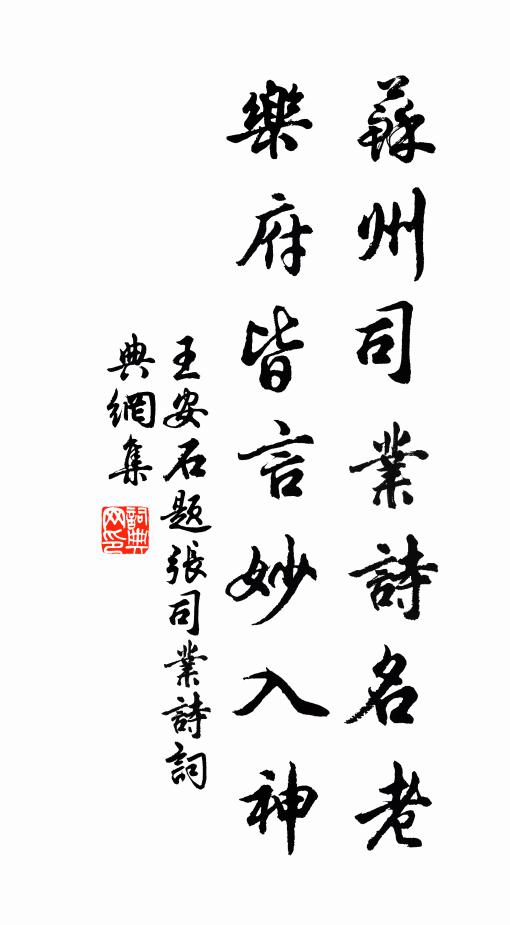 蘇州司業詩名老
樂府皆言妙入神
王安石題張司業詩詞
典網集
詞典網印